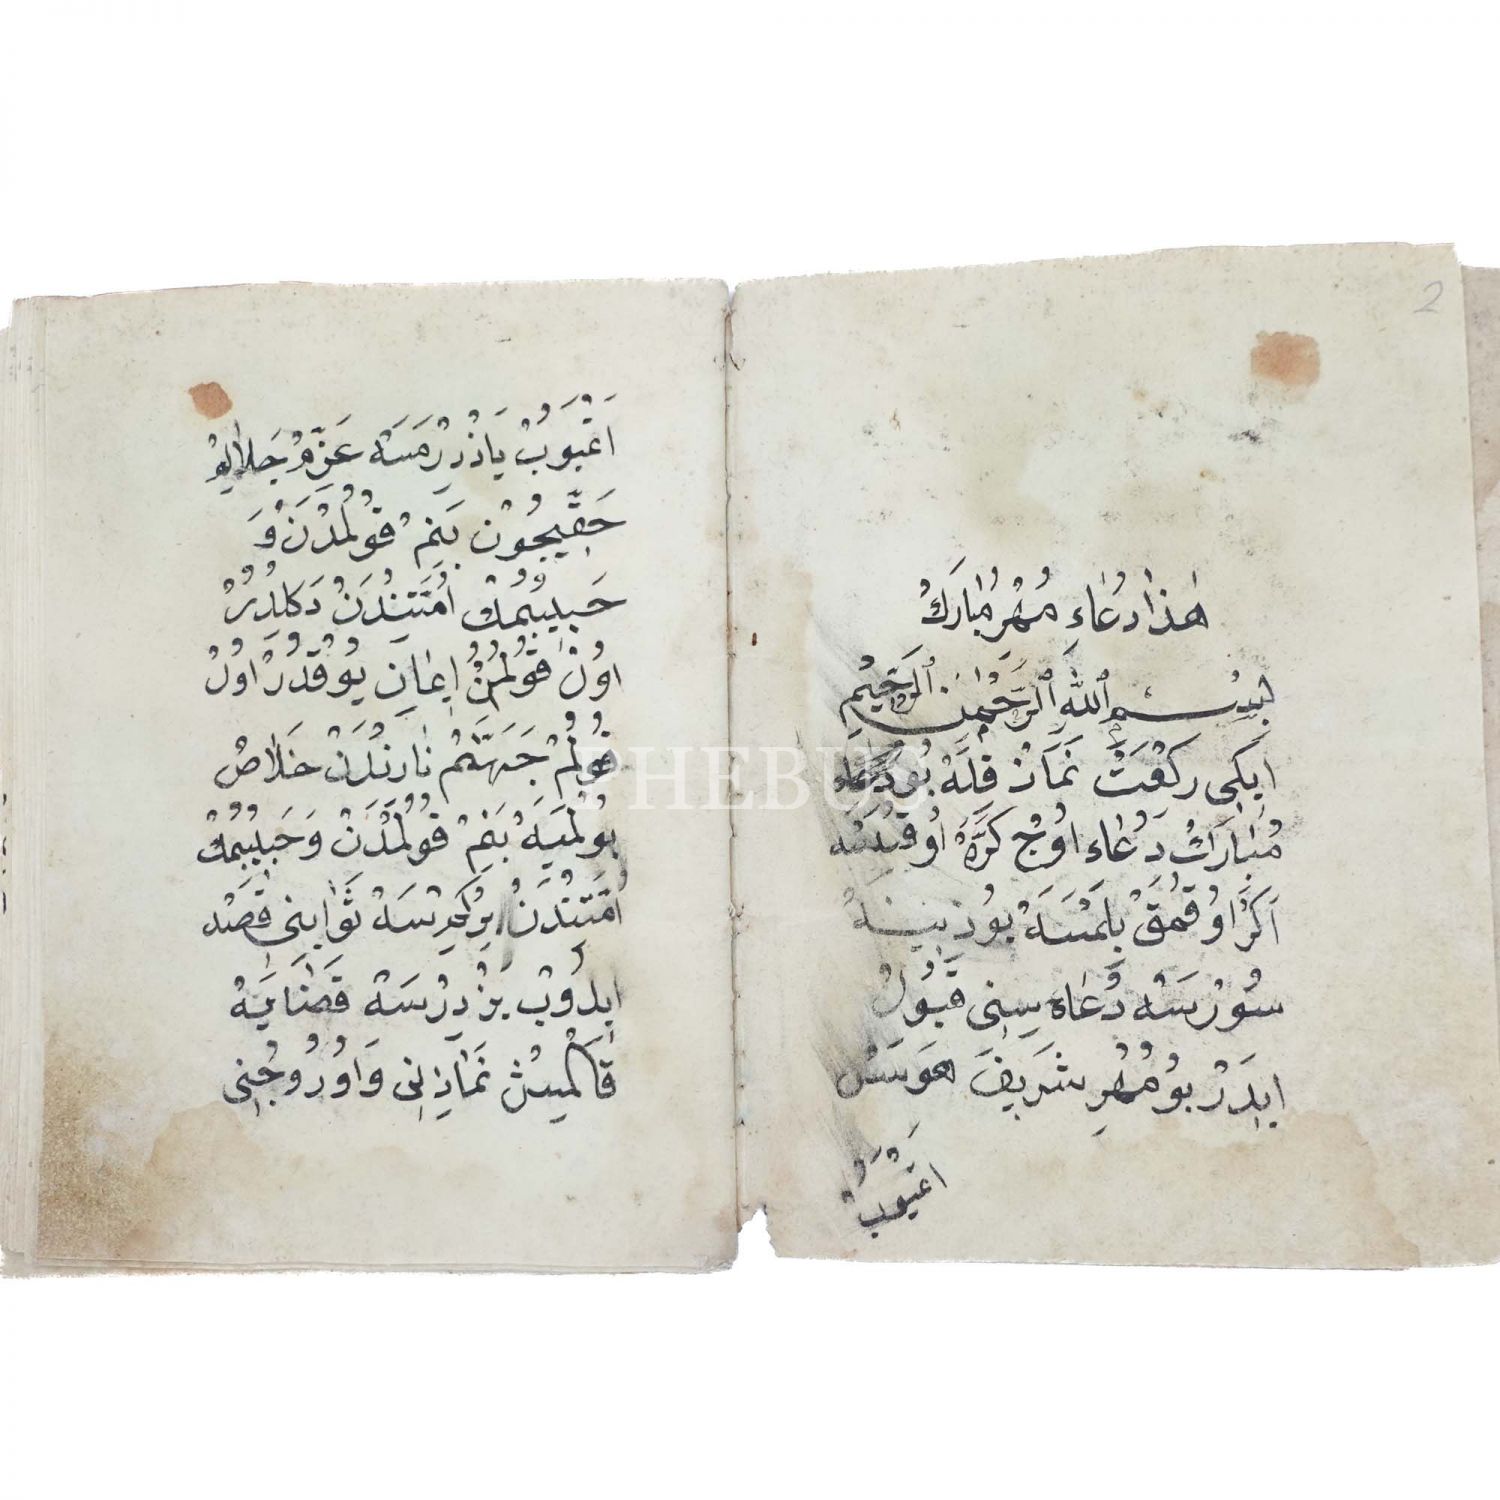 2
هٰذَا دُعَاءِ مُهُرِ مُبَارَكْ
بِسْمِ اللّٰهِ الرَّحْمٰنِ الرَّحِيمِ
ايكِى ركْعَتْ نَمَازْ قِلَه بُو دُعَاء
مُبَارَكْ دُعَاء اوُچْ كَرَّهْ اوُقُسَه
اَكَرْ اوُقُمَقْ بِلْمَسَه يوُزينَه
سوُرْسَه دُعَاسِنِى قَبُولْ
ايدَرْ بوُ مُهُرِ شَرِيفَ هَوَسْ
اغيوب
اَغيوُبْ يَازْدِرْمَسَه عَزَّمْ جَلَالِمْ
حَقّيچوُنْ بَنِمْ قوُلُمْدَنْ وَ
حَبيبُمُكْ اُمَّتِنْدَنْ دَكلْدُرْ
اوُلْ قوُلُمُنْ اِيمَانِ يوُقْدُرْ اوُلْ
قوُلُمْ جَهَنَّمْ نَارنْدَنْ خَلَاصْ
بوُلْمَيَه بَنِمْ قوُلُمْدَنْ وَحَبيبُمُكْ
اُمَّتِنْدَنْ بِرْ كِمْسَه ثَوَابنِى قَصْد
ايدوُبْ يَزْدِرْسَه قَضَايَه
قَالْمِشْ نَمَازِنِى وَ اوُرُوجُنِى
PHEBUS